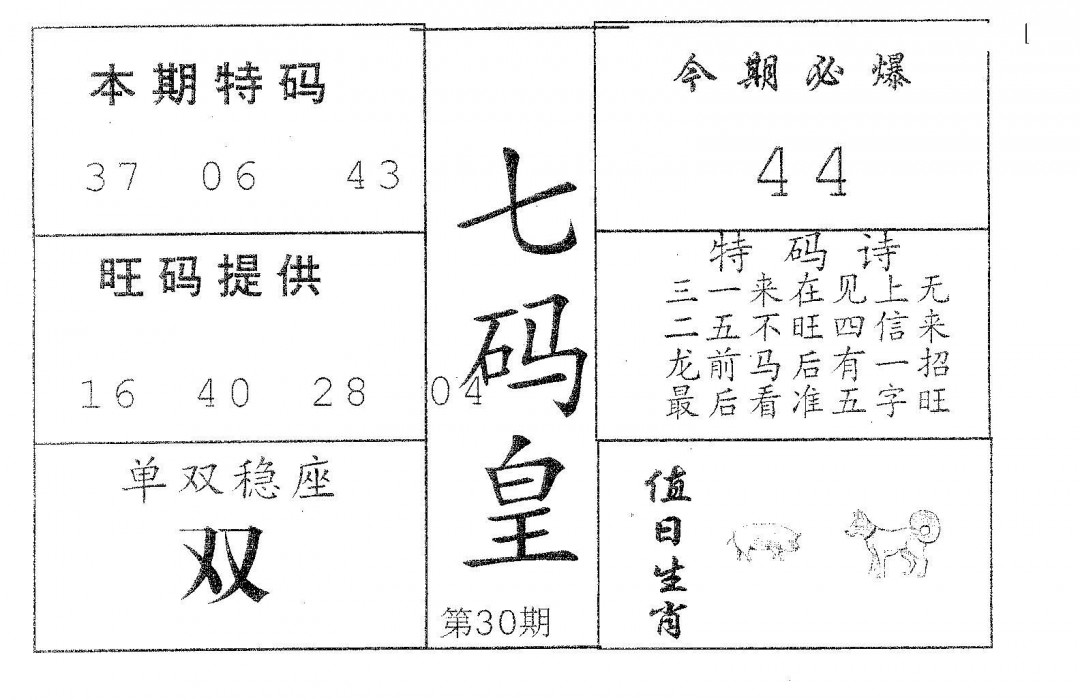 本期特码
37 06 43
旺码提供
16 40 28 04
单双稳座
双
七码皇
第30期
今期必爆
44
特码诗
三一来在见上无
二五不旺四信来
龙前马后有一招
最后看准五字旺
值日生肖